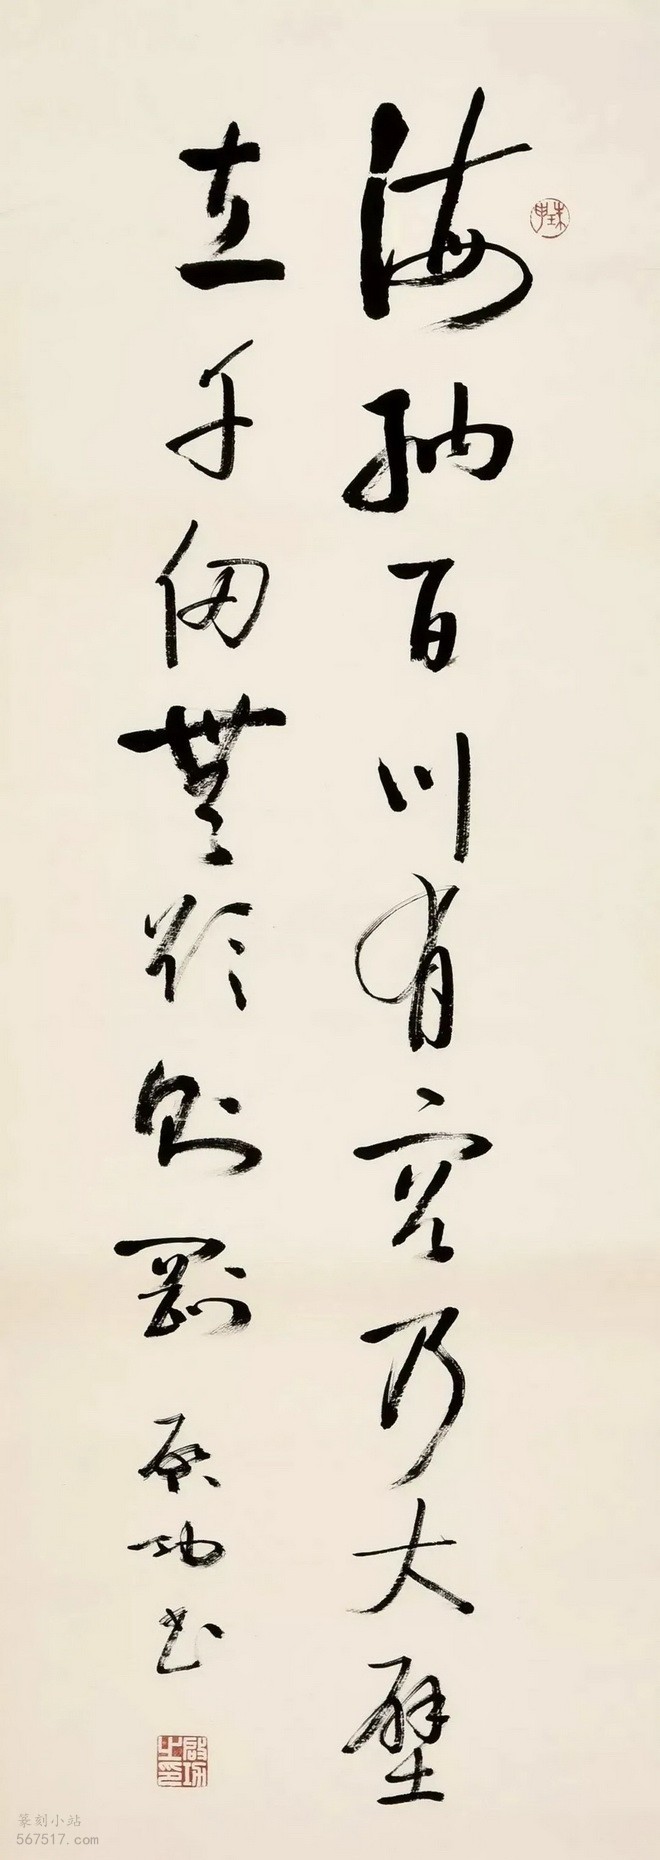 海纳百川有容乃大壁
立千仞無欲则剛
启功书
啟功之印
篆刻小站
567517.com